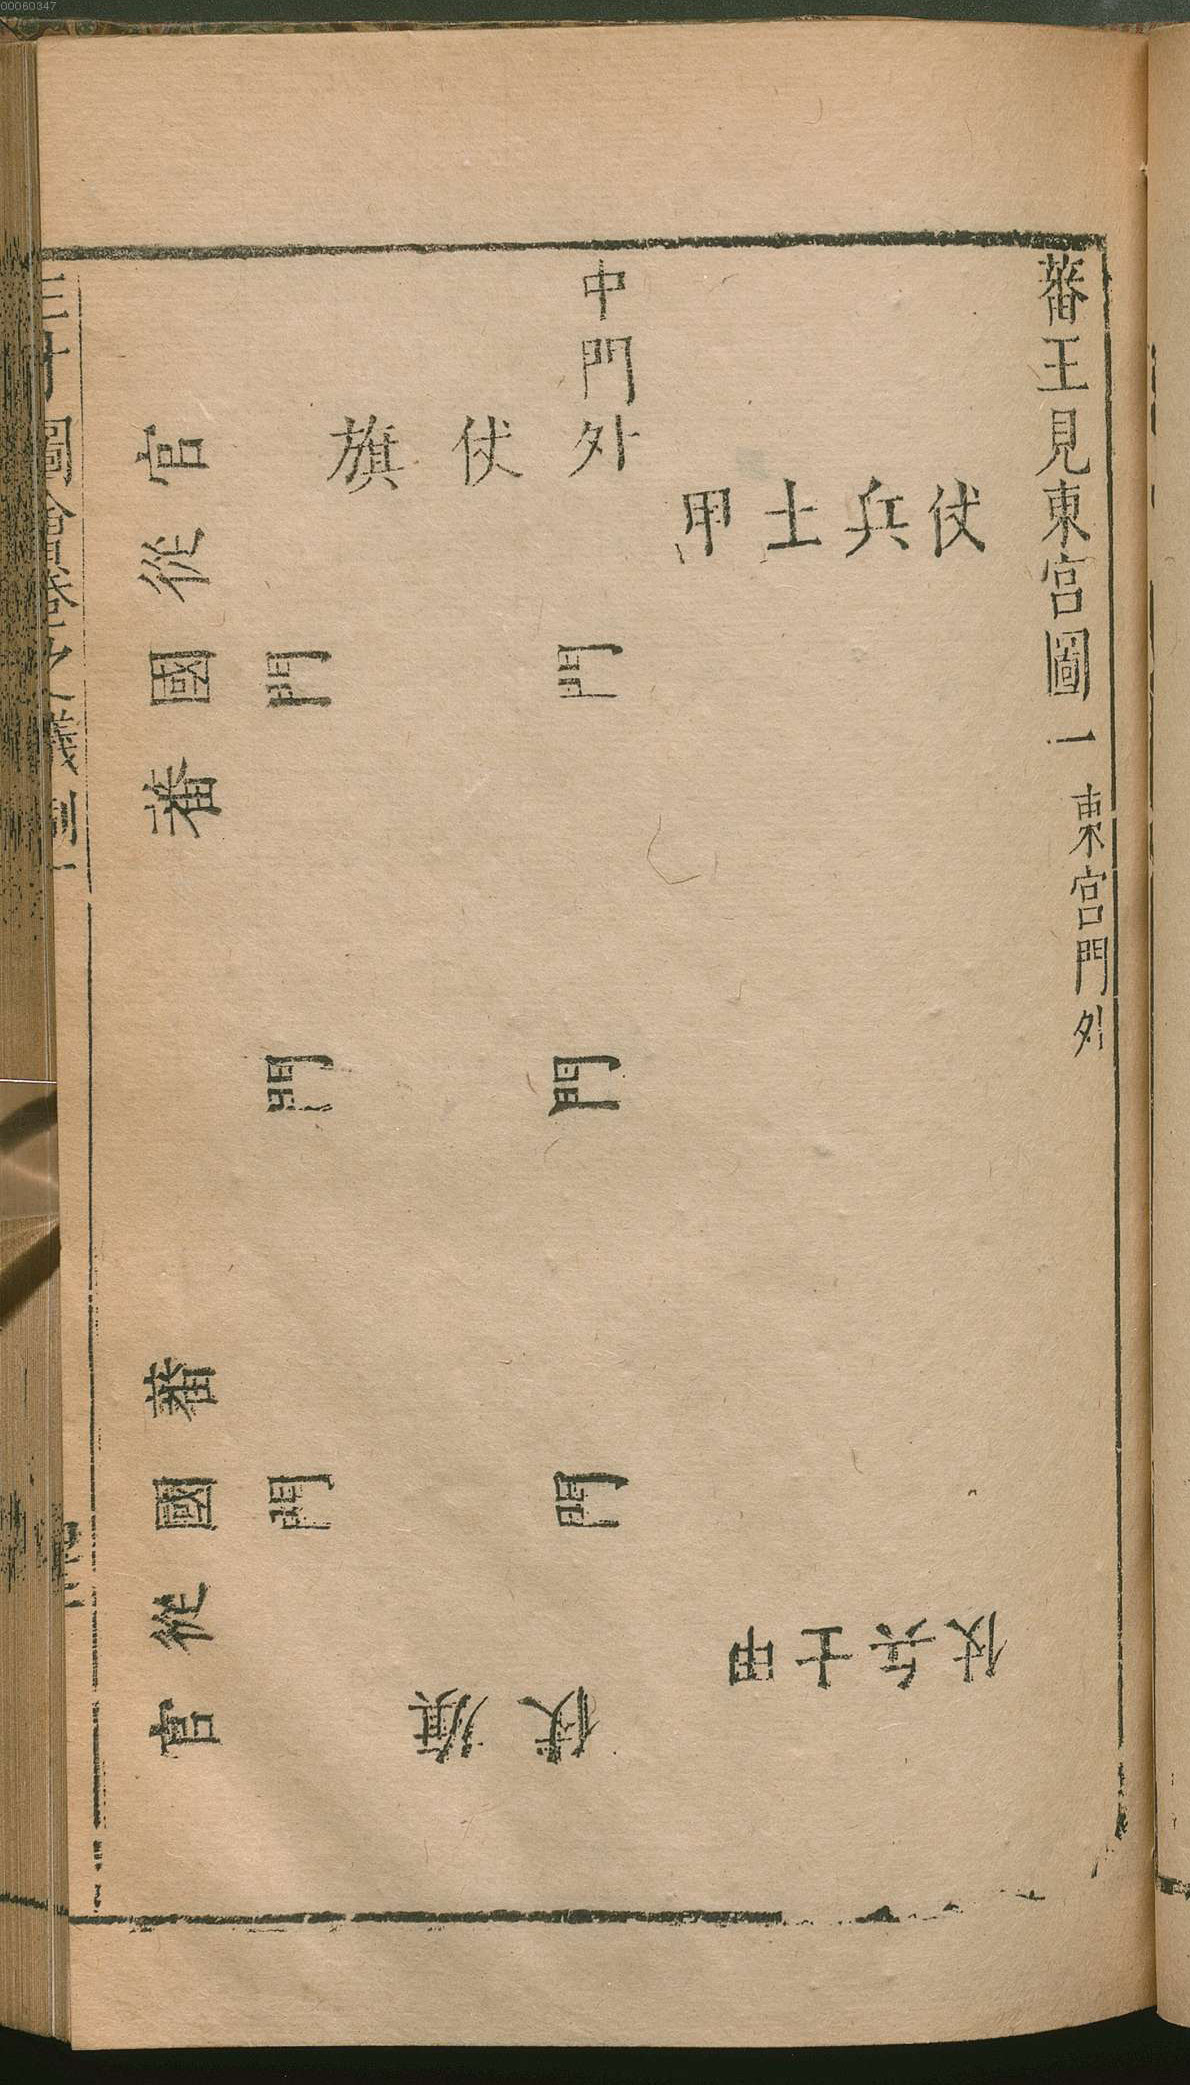 00060347
蕃王見東宮圖一 東宮門外
仗兵士甲
仗兵士甲
中門外
仗旗
仗旗
門
門
門
門
門
門
蕃國從官
蕃國從官
三才圖會卷之儀制一